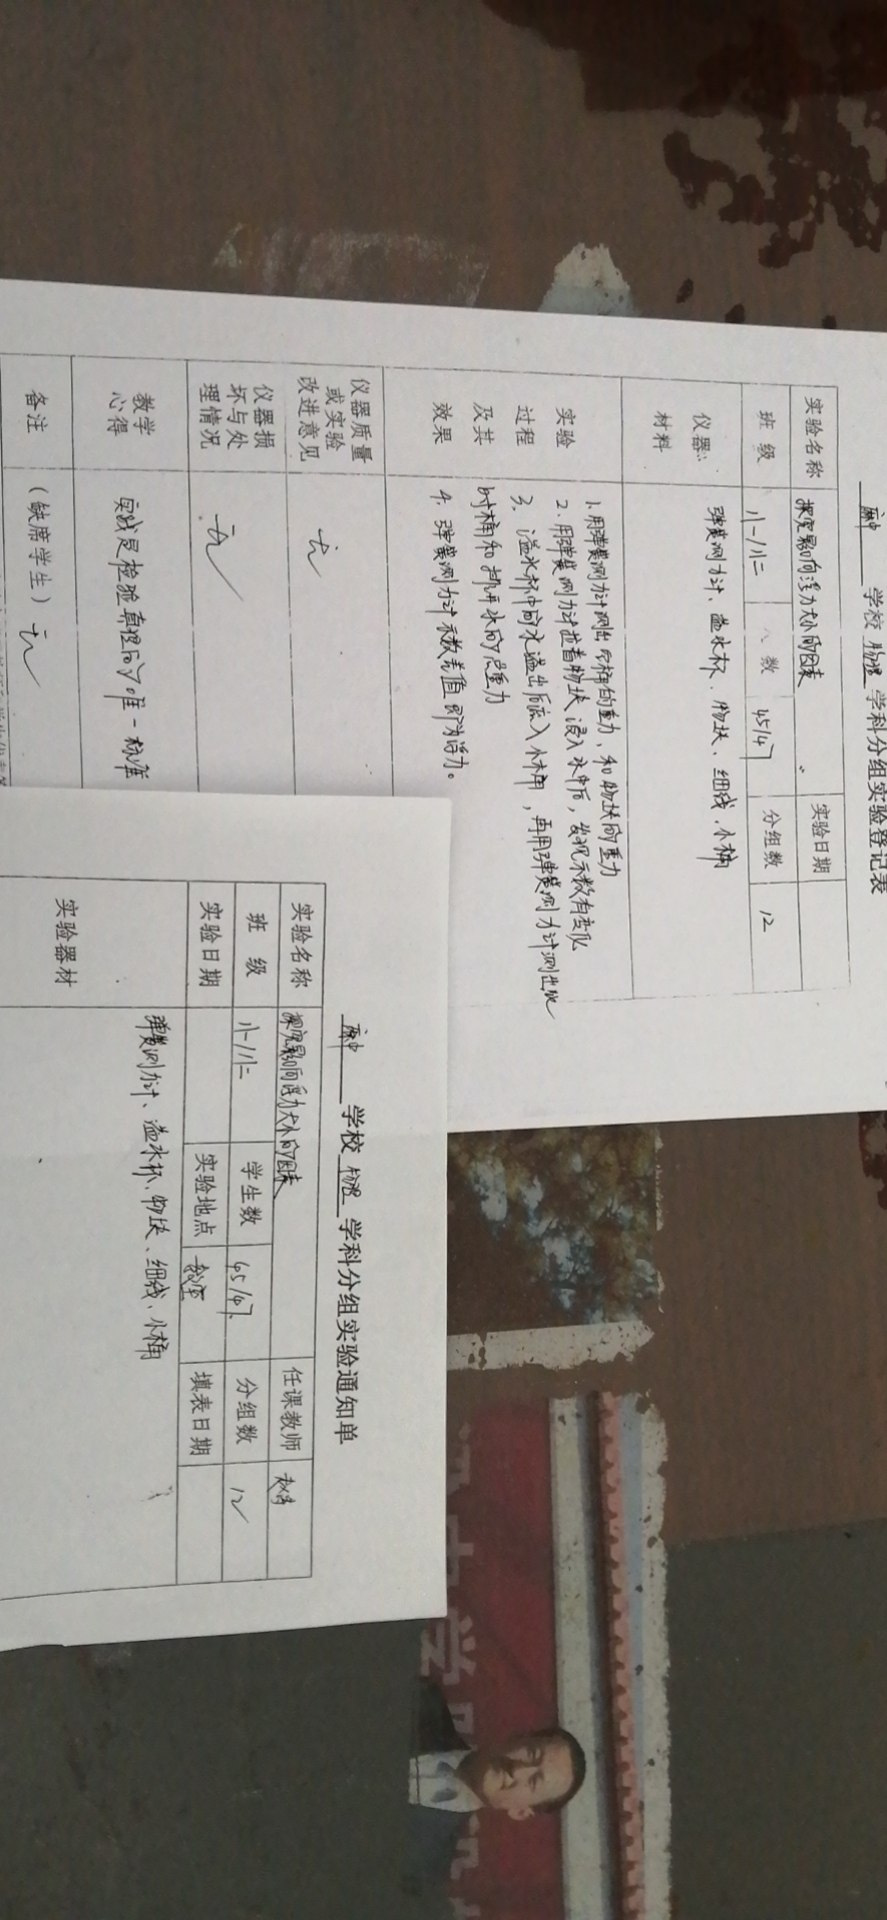 学校 物理 学科分组实验登记表
实验名称 探究影响浮力大小的因素 实验日期
班 级 八一/八二 人 数 45/47 分组数 12
仪器
材料
弹簧测力计、溢水杯、物块、细线、小桶
实验
过程
及其
效果
1.用弹簧测力计测出空桶的重力,和物块的重力
2.用弹簧测力计拉着物块浸入水中后,发现示数有变化
3、溢水杯中的水溢出后流入小桶,再用弹簧测力计测出此
时桶和排开水的总重力
4.弹簧测力计示数差值即为浮力。
仪器质量
或实验
改进意见
无
仪器损
坏与处
理情况
无
教学
心得
实践是检验真理的唯一标准
备注
(缺席学生) 无
学校 物理 学科分组实验通知单
实验名称 探究影响浮力大小的因素 任课教师
班 级 八一/八二 学生数 45/47 分组数 12
实验日期 实验地点 填表日期
实验器材
弹簧测力计、溢水杯、物块、细线、小桶
中学